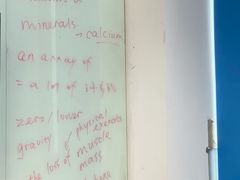 minerals
→ calcium
an array of
= a lot of
zero/lower
gravity
physical
exercise
the loss of muscle
mass